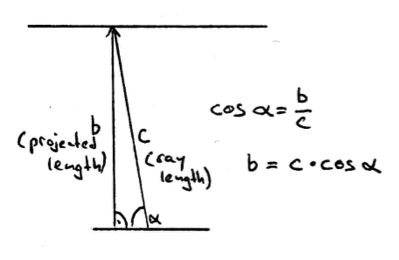 b
(projected
length)
c
(ray
length)
α
cos α = b/c
b = c · cos α